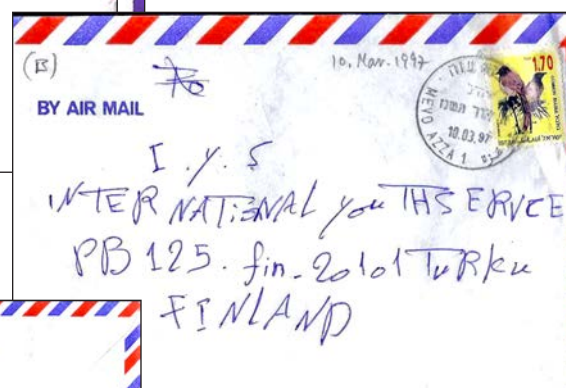 (B)
To
10. Mar. 1997
1.70
BY AIR MAIL
MEVO AZZA 1
10.03.97
I.Y.S
INTERNATIONAL youTHSERVCE
PB 125. fin_20101 TuRku
FINLAND